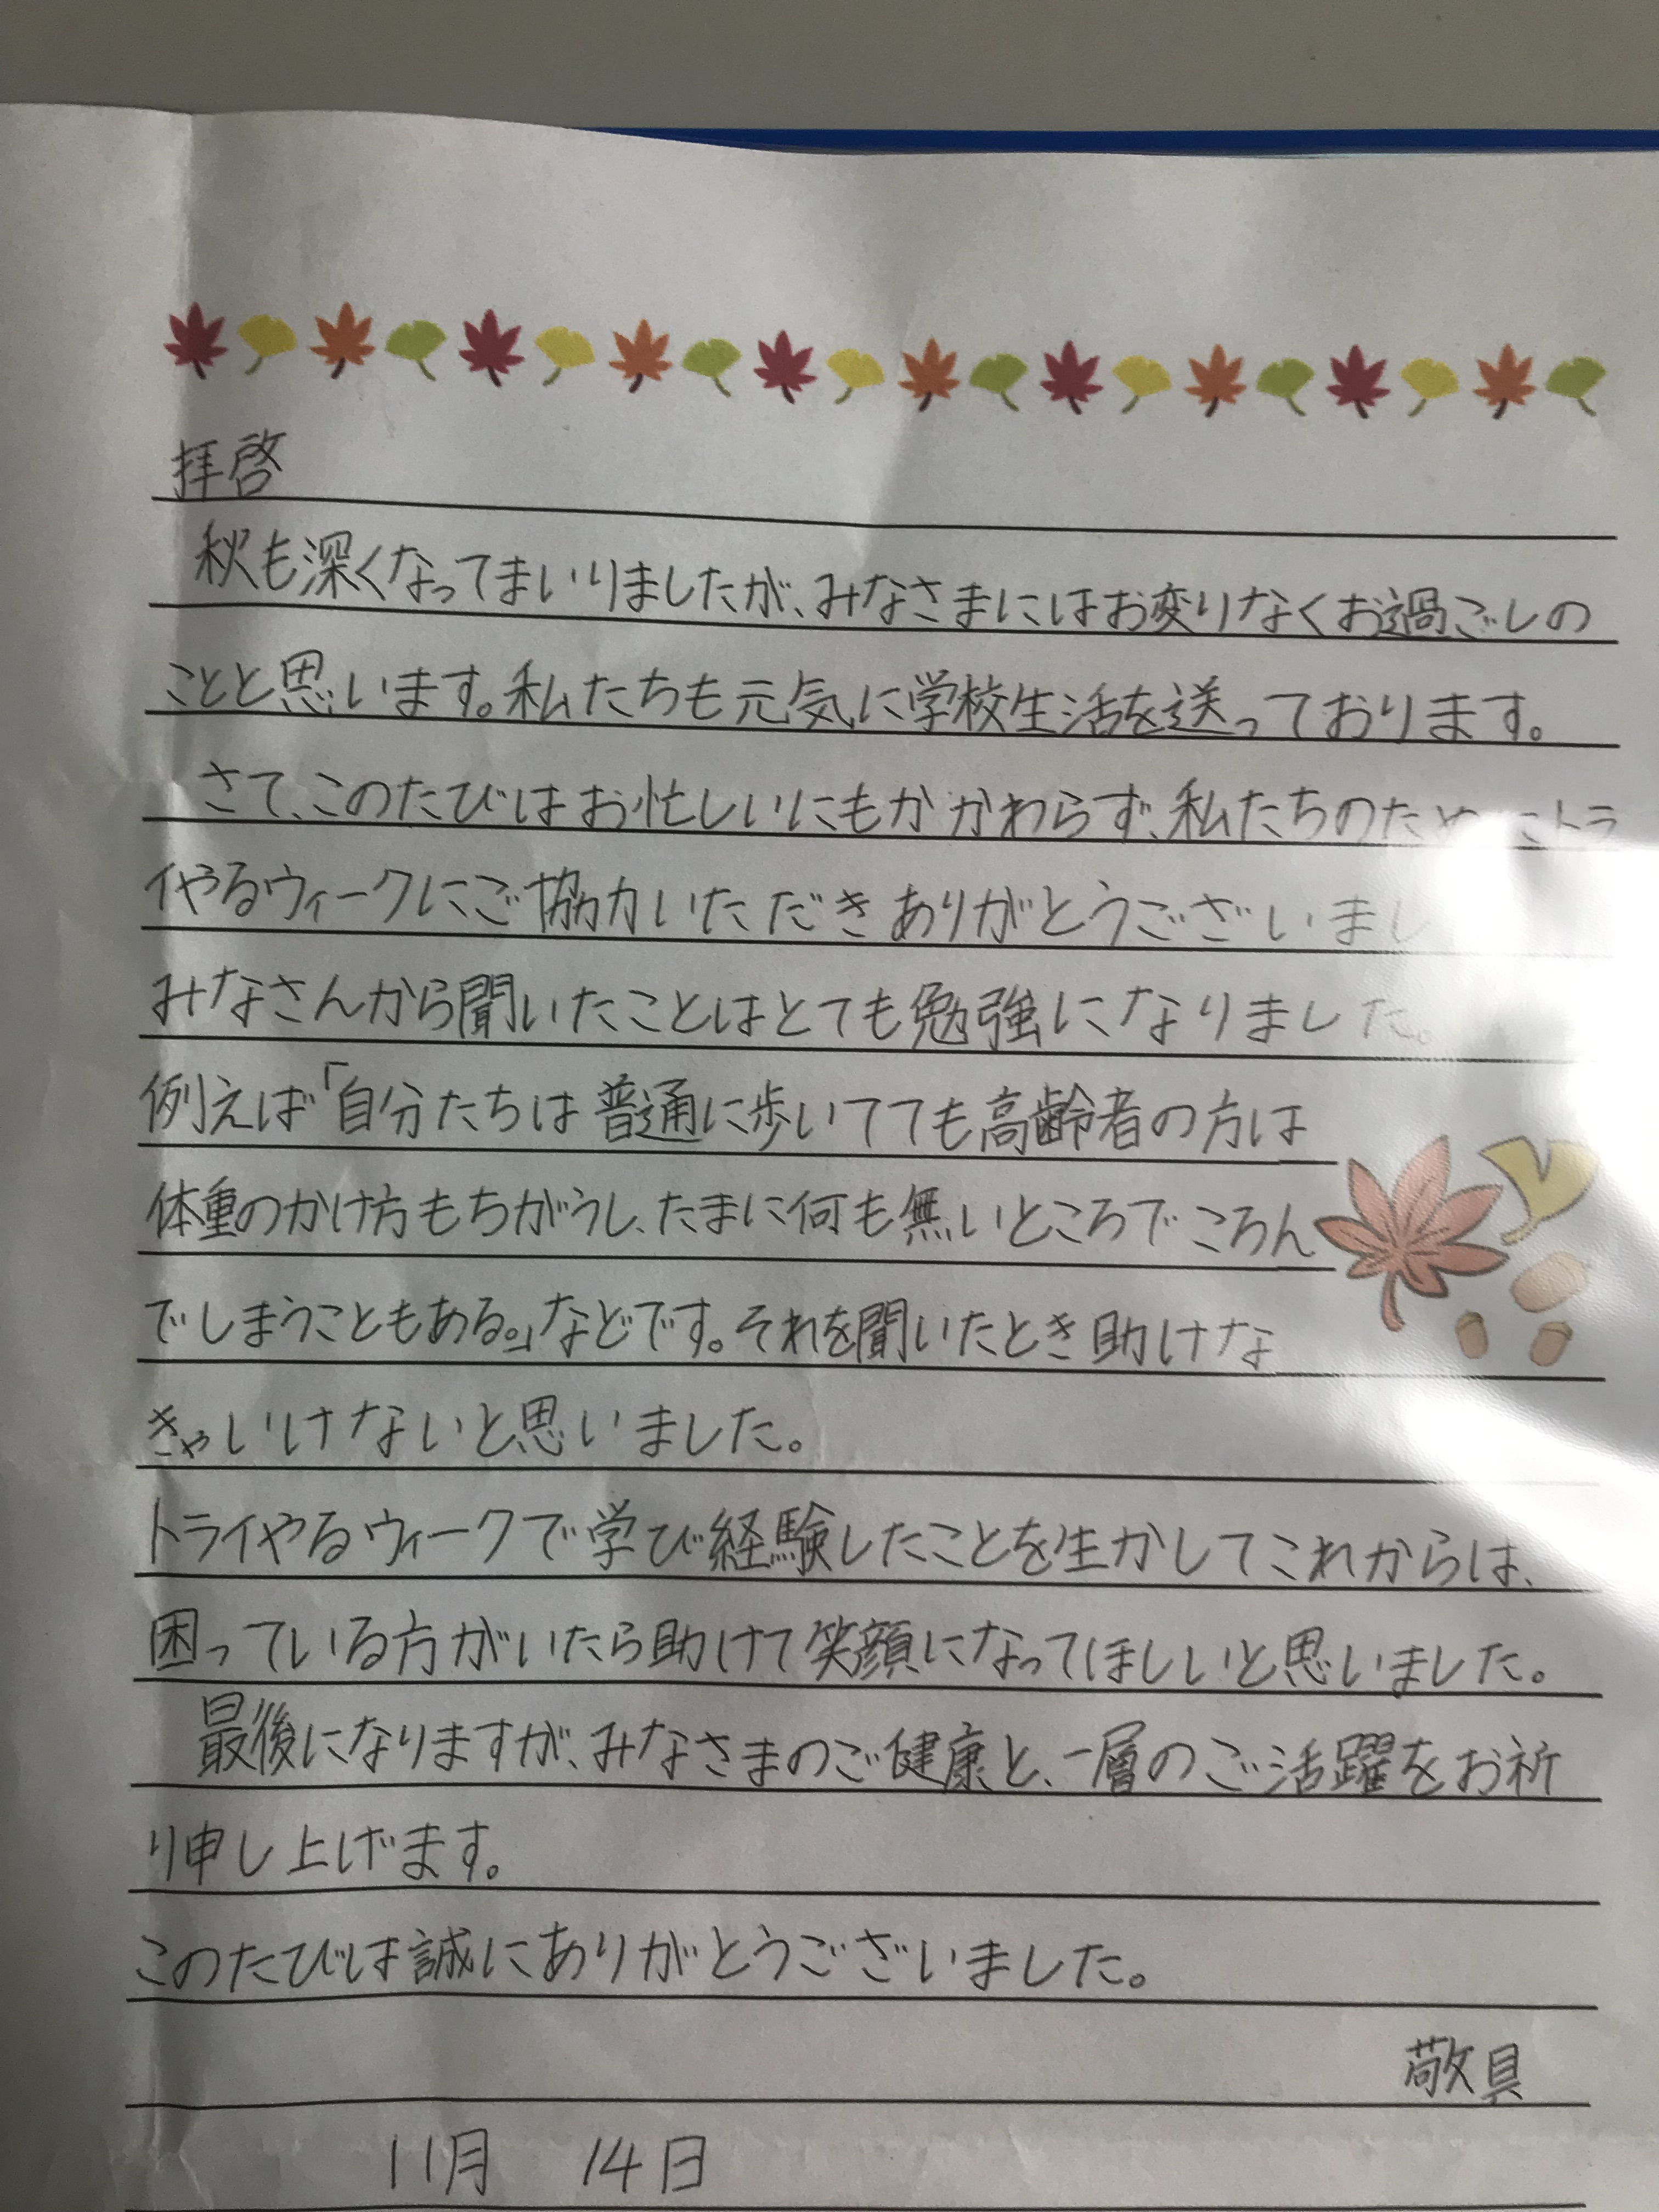 拝啓
秋も深くなってまいりましたが、みなさまにはお変りなくお過ごしの
ことと思います。私たちも元気に学校生活を送っております。
さて、このたびはお忙しいにもかかわらず、私たちのためにトラ
イやるウィークにご協力いただきありがとうございまし
みなさんから聞いたことはとても勉強になりました。
例えば「自分たちは普通に歩いてても高齢者の方は
体重のかけ方もちがうし、たまに何も無いところでころん
でしまうこともある。」などです。それを聞いたとき助けな
きゃいけないと思いました。
トライやるウィークで学び経験したことを生かしてこれからは、
困っている方がいたら助けて笑顔になってほしいと思いました。
最後になりますが、みなさまのご健康と、一層のご活躍をお祈
り申し上げます。
このたびは誠にありがとうございました。
敬具
11月 14日